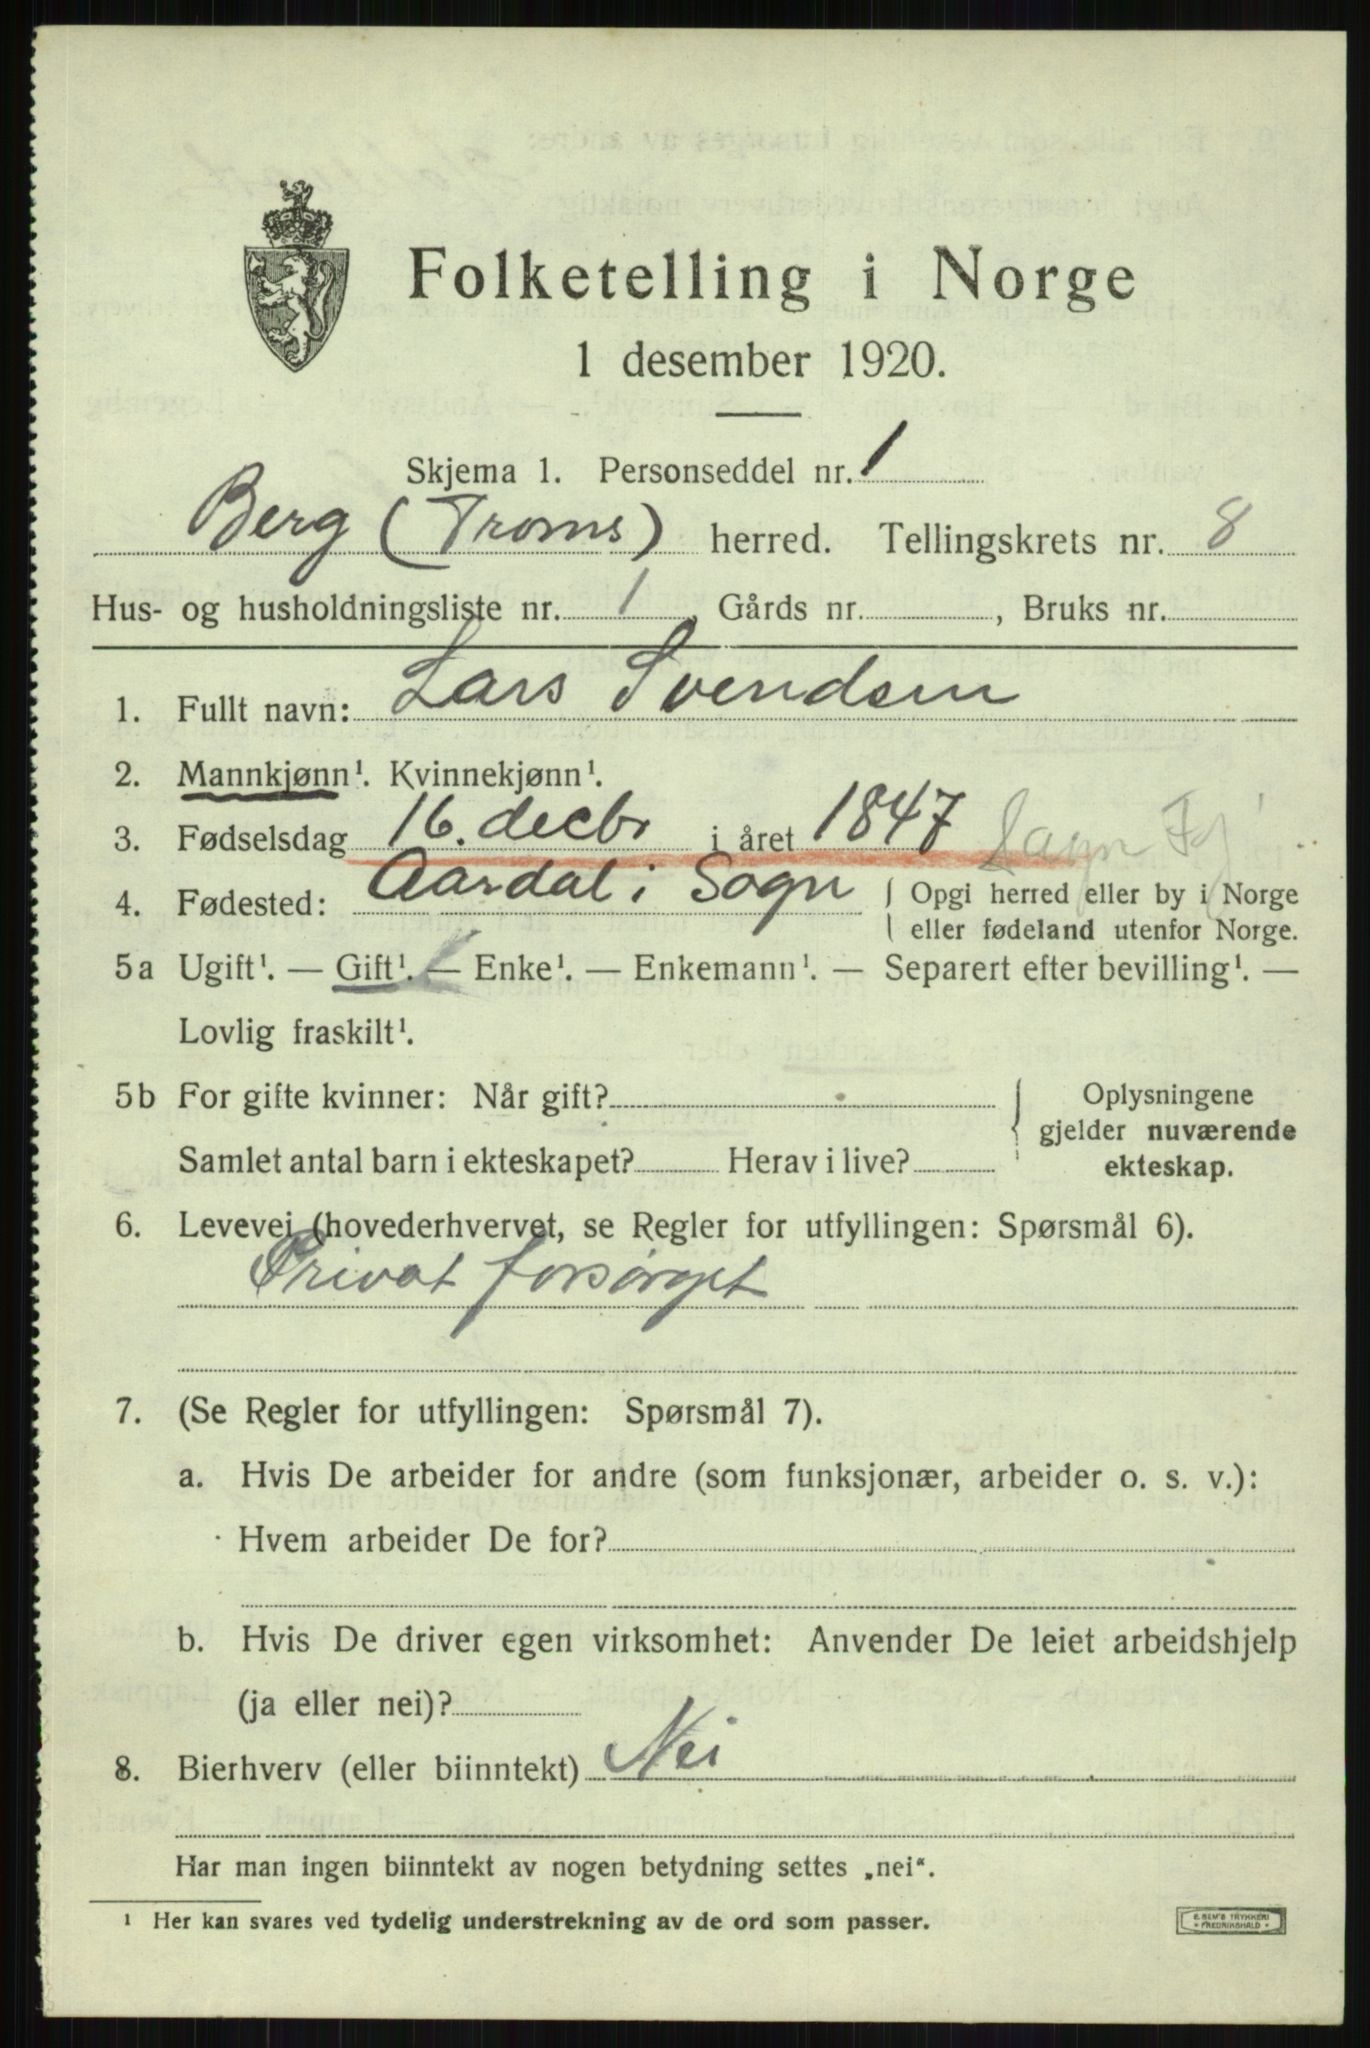 Folketelling i Norge
1 desember 1920.
Skjema 1. Personseddel nr. 1
Berg (Troms) herred. Tellingskrets nr. 8
Hus- og husholdningsliste nr. 1, Gårds nr. , Bruks nr.
1. Fullt navn: Lars Svendsen
2. Mannkjønn¹. Kvinnekjønn¹.
3. Fødselsdag 16. decbr i året 1847 Sogn Fj
4. Fødested: Aardal i Sogn { Opgi herred eller by i Norge
eller fødeland utenfor Norge.
5a Ugift¹. — Gift¹. — Enke¹. — Enkemann¹. — Separert efter bevilling¹. —
Lovlig fraskilt¹.
5b For gifte kvinner: Når gift? } Oplysningene
gjelder nuværende
Samlet antal barn i ekteskapet? Herav i live? ekteskap.
6. Levevei (hovederhvervet, se Regler for utfyllingen: Spørsmål 6).
Privat forsørget
7. (Se Regler for utfyllingen: Spørsmål 7).
a. Hvis De arbeider for andre (som funksjonær, arbeider o. s. v.):
Hvem arbeider De for?
b. Hvis De driver egen virksomhet: Anvender De leiet arbeidshjelp
(ja eller nei)?
8. Bierhverv (eller biinntekt) Nei
Har man ingen biinntekt av nogen betydning settes „nei“.
¹ Her kan svares ved tydelig understrekning av de ord som passer.
TRYKKERI
FREDRIKSHALD